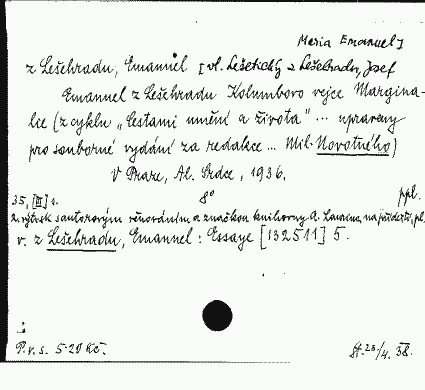 Maria Emanuel]
z Lešehradu, Emanuel [vl. Lešetický z Lešehradu, Josef
Emanuel z Lešehradu Kolumbovo vejce Margina-
lie (z cyklu „Cestami umění a života" ... upraveny
pro souborné vydání za redakce ... Mil. Novotného)
V Praze, Al. Srdce, 1936.
35, [III] s. 8° ppl.
z. výtisk s autorovým věnováním a značkou knihovny A. na předsádce
v. z Lešehradu, Emanuel: Essaye [132511] 5.
P.v.s. 5·29 Kč. St. 28/4. 38.